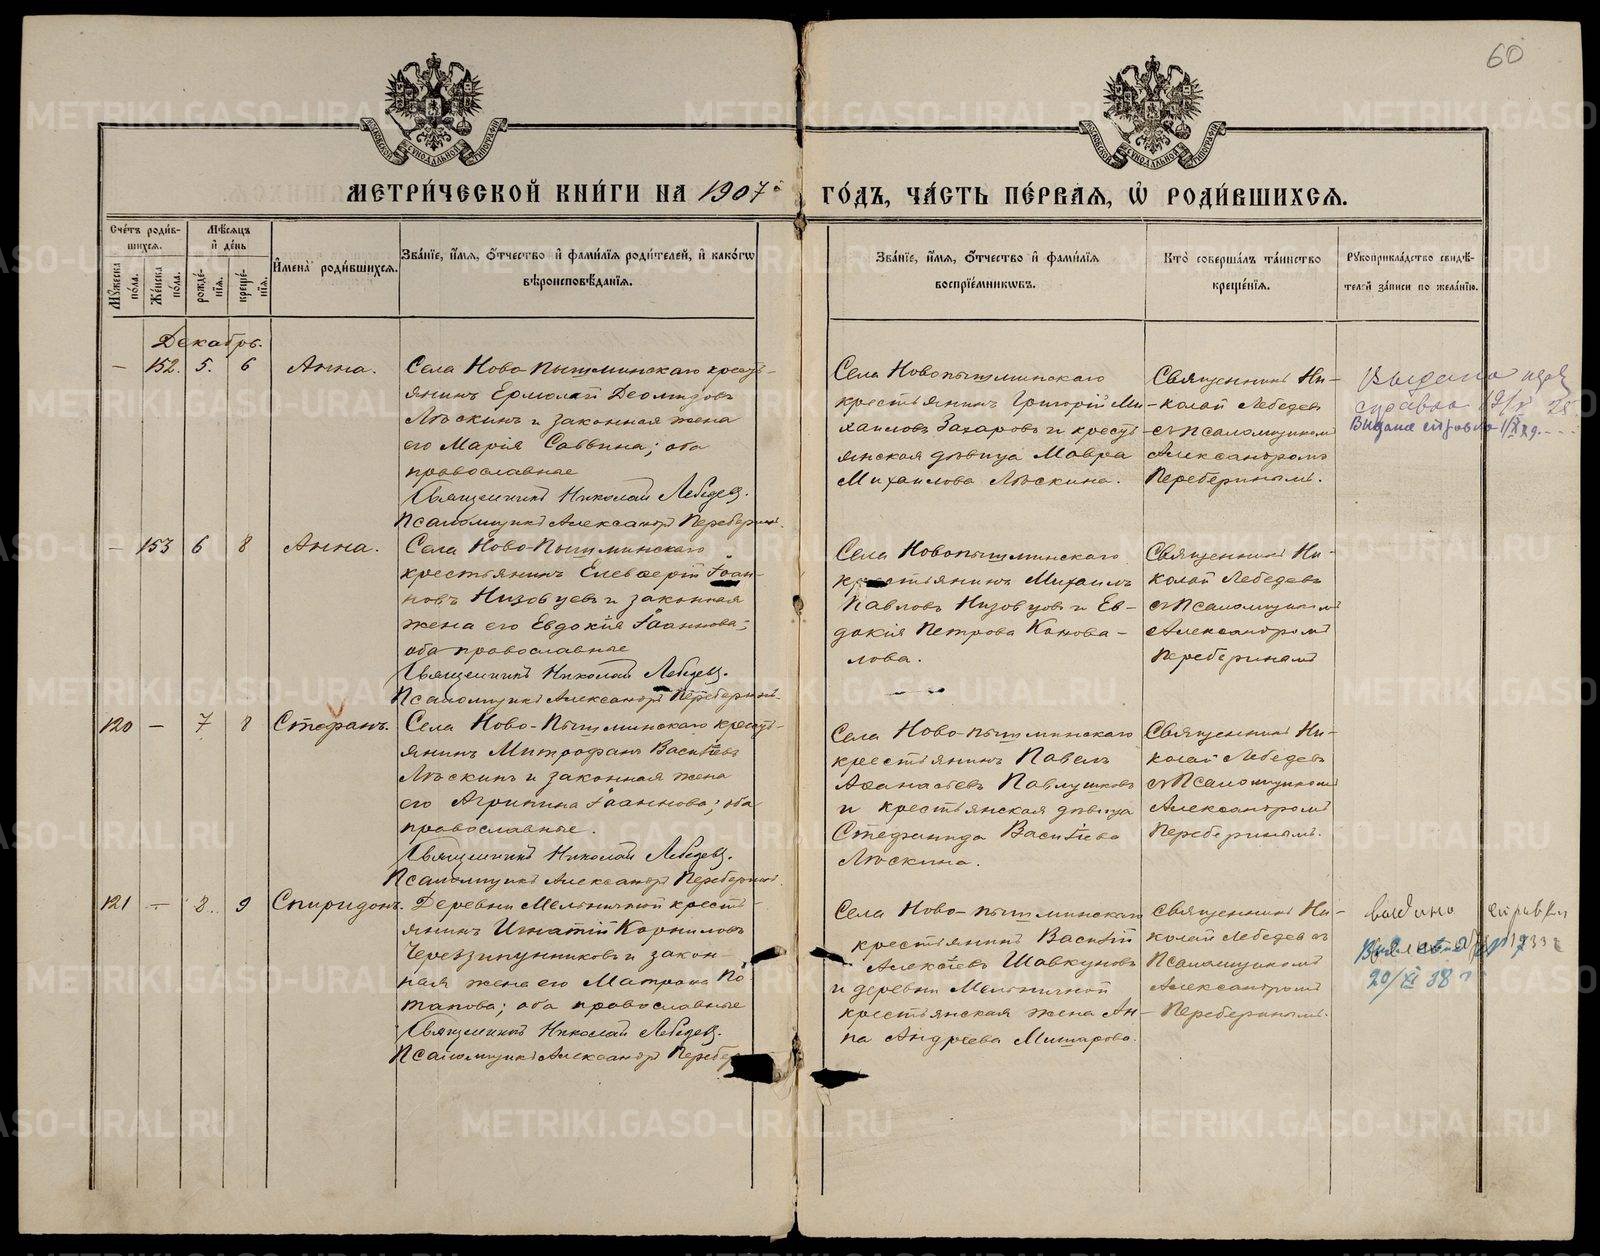 60
МОСКОВСКОЙ СѴНОДАЛЬНОЙ ТИПОГРАФІИ
МОСКОВСКОЙ СѴНОДАЛЬНОЙ ТИПОГРАФІИ
МЕТРИ́ЧЕСКОЙ КНИ́ГИ НА 1907й ГО́ДЪ, ЧА́СТЬ ПЕ́РВАЯ, Ѡ҆ РОДИ́ВШИХСЯ.
Сче́тъ роди́в-
шихся.
Мѣ́сяцъ
и҆ де́нь
Мꙋ́жеска по́ла.
Же́нска по́ла.
рожде́-
нїя.
креще́-
нїя.
И҆мена̀ роди́вшихся.
Зва́нїе, и҆́мя, ѻ҆́тчество и҆ фами́лїя роди́телей, и҆ како́гѡ
вѣроисповѣ́данїя.
Зва́нїе, и҆́мя, ѻ҆́тчество и҆ фами́лїя
воспрїе́мникѡвъ.
Кто̀ соверша́лъ та́инство
креще́нїя.
Рꙋкоприкла́дство свидѣ́-
телей за́писи по жела́нїю.
Декабрь.
— 152. 5. 6 Анна.
Села Ново-Пышминскаго кресть-
янинъ Ермолай Деомидовъ
Лѣскинъ и законная жена
его Марія Саввина; оба
православные
Священникъ Николай Лебедевъ.
Псаломщикъ Александръ Переберинъ.
Села Новопышминскаго
крестьянинъ Григорій Ми-
хаиловъ Захаровъ и кресть-
янская дѣвица Мавра
Михаилова Лѣскина.
Священникъ Ни-
колай Лебедевъ
съ Псаломщикомъ
Александромъ
Переберинымъ.
Выдана
справка
Выдана справка
— 153 6 8 Анна.
Села Ново-Пышминскаго
крестьянинъ Елевѳерій Іоан-
новъ Низовцевъ и законная
жена его Евдокія Іоаннова;
оба православные
Священникъ Николай Лебедевъ.
Псаломщикъ Александръ Переберинъ.
Села Новопышминскаго
крестьянинъ Михаилъ
Павловъ Низовцовъ и Ев-
докія Петрова Конова-
лова.
Священникъ Ни-
колай Лебедевъ
съ Псаломщикомъ
Александромъ
Переберинымъ
120 — 7 8 Стефанъ.
Села Ново-Пышминскаго кресть-
янинъ Митрофанъ Васильевъ
Лѣскинъ и законная жена
его Агрипина Іоаннова; оба
православные.
Священникъ Николай Лебедевъ.
Псаломщикъ Александръ Переберинъ.
Села Ново-Пышминскаго
крестьянинъ Павелъ
Аѳанасьевъ Павлушковъ
и крестьянская дѣвица
Стефанида Васильева
Лѣскина.
Священникъ Ни-
колай Лебедевъ
съ Псаломщикомъ
Александромъ
Переберинымъ.
121 — 8. 9 Спиридонъ.
Деревни Мельничной кресть-
янинъ Игнатій Корниловъ
Черезипунниковъ и закон-
ная жена его Матрона По-
тапова; оба православные
Священникъ Николай Лебедевъ.
Псаломщикъ Александръ
Села Ново-Пышминскаго
крестьянинъ Василій
Алексѣевъ Шавкуновъ
и деревни Мельничной
крестьянская жена Ан-
на Андреева Мишарова.
Священникъ Ни-
колай Лебедевъ съ
Псаломщикомъ
Александромъ
Переберинымъ.
выдана справка
20/XI 38 г